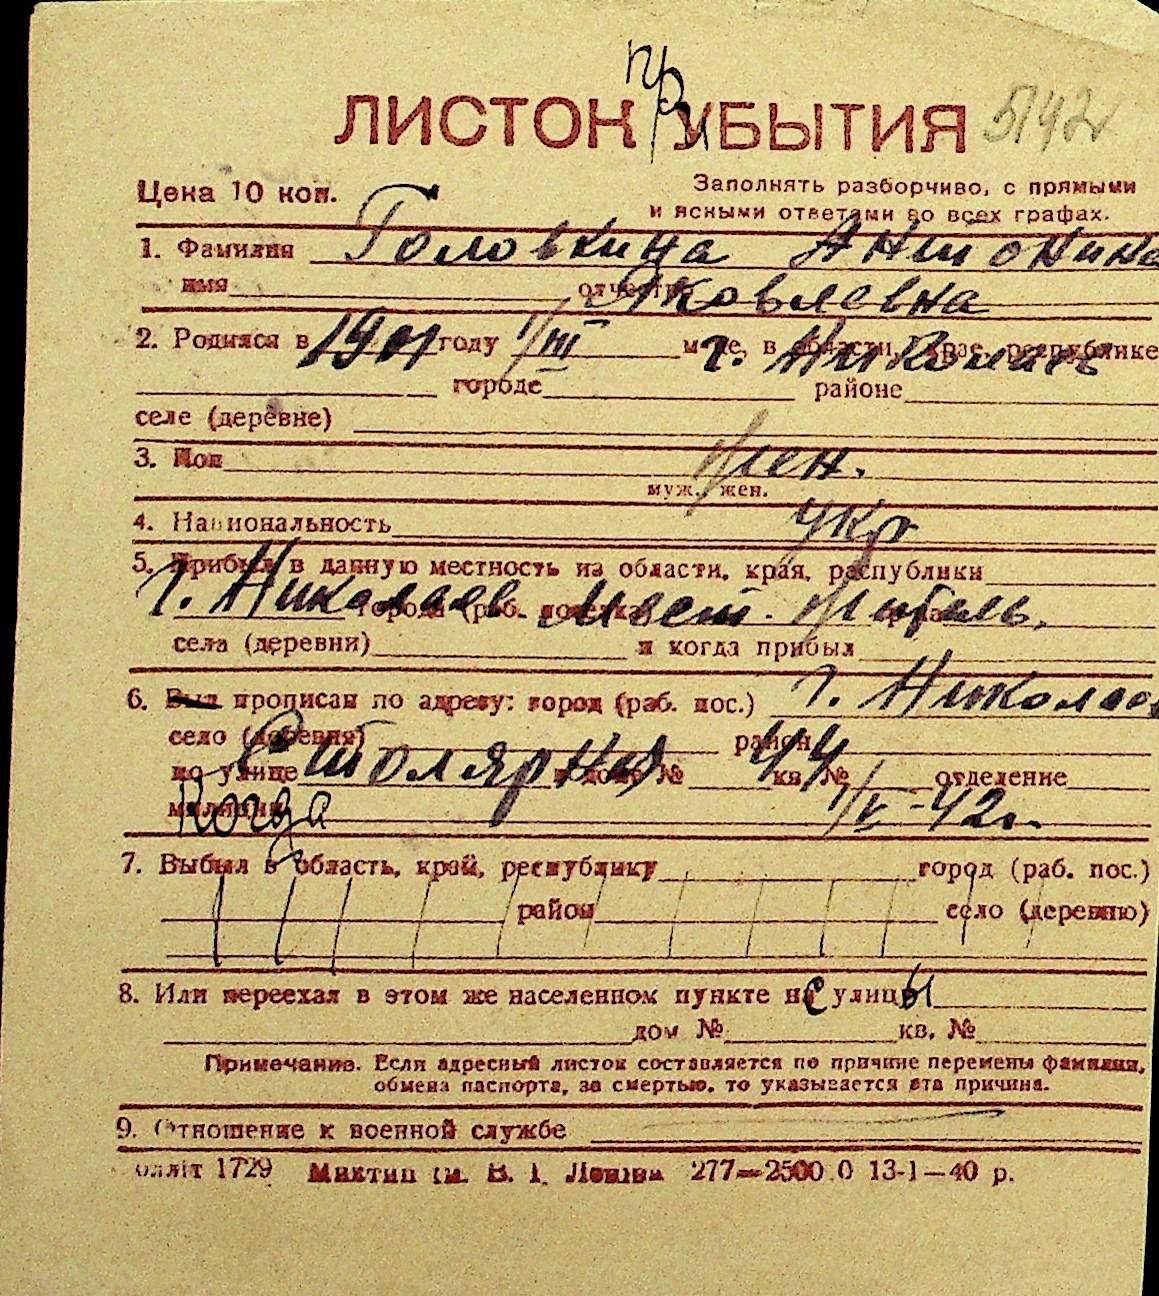 при
ЛИСТОК УБЫТИЯ 5142
Цена 10 коп. Заполнять разборчиво, с прямыми
и ясными ответами во всех графах.
1. Фамилия Головкина Антонина
имя отчество Яковлевна
2. Родился в 1901 году 1/III м-це, в области, крае, республике г. Николаев
городе районе
селе (деревне)
3. Пол жен.
муж., жен.
4. Национальность укр
5. Прибыл в данную местность из области, края, республики
г. Николаев города (раб. поселка) Мест. житель,
села (деревни) и когда прибыл
6. Был прописан по адресу: город (раб. пос.) г. Николаев
село (деревня) район
по улице Столярная в доме № 44 кв. № отделение
милиции Когда 1/V-42г.
7. Выбыл в область, край, республику город (раб. пос.)
район село (деревню)
8. Или переехал в этом же населенном пункте с улицы
дом № кв. №
Примечание. Если адресный листок составляется по причине перемены фамилии,
обмена паспорта, за смертью, то указывается эта причина.
9. Отношение к военной службе
олліт 1729 277—2500.0 13-1—40 р.